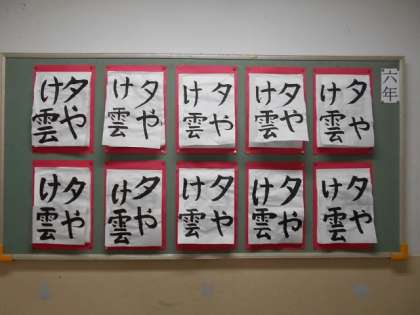 六年
夕や
け雲
夕や
け雲
夕や
け雲
夕や
け雲
夕や
け雲
夕や
け雲
夕や
け雲
夕や
け雲
夕や
け雲
夕や
け雲